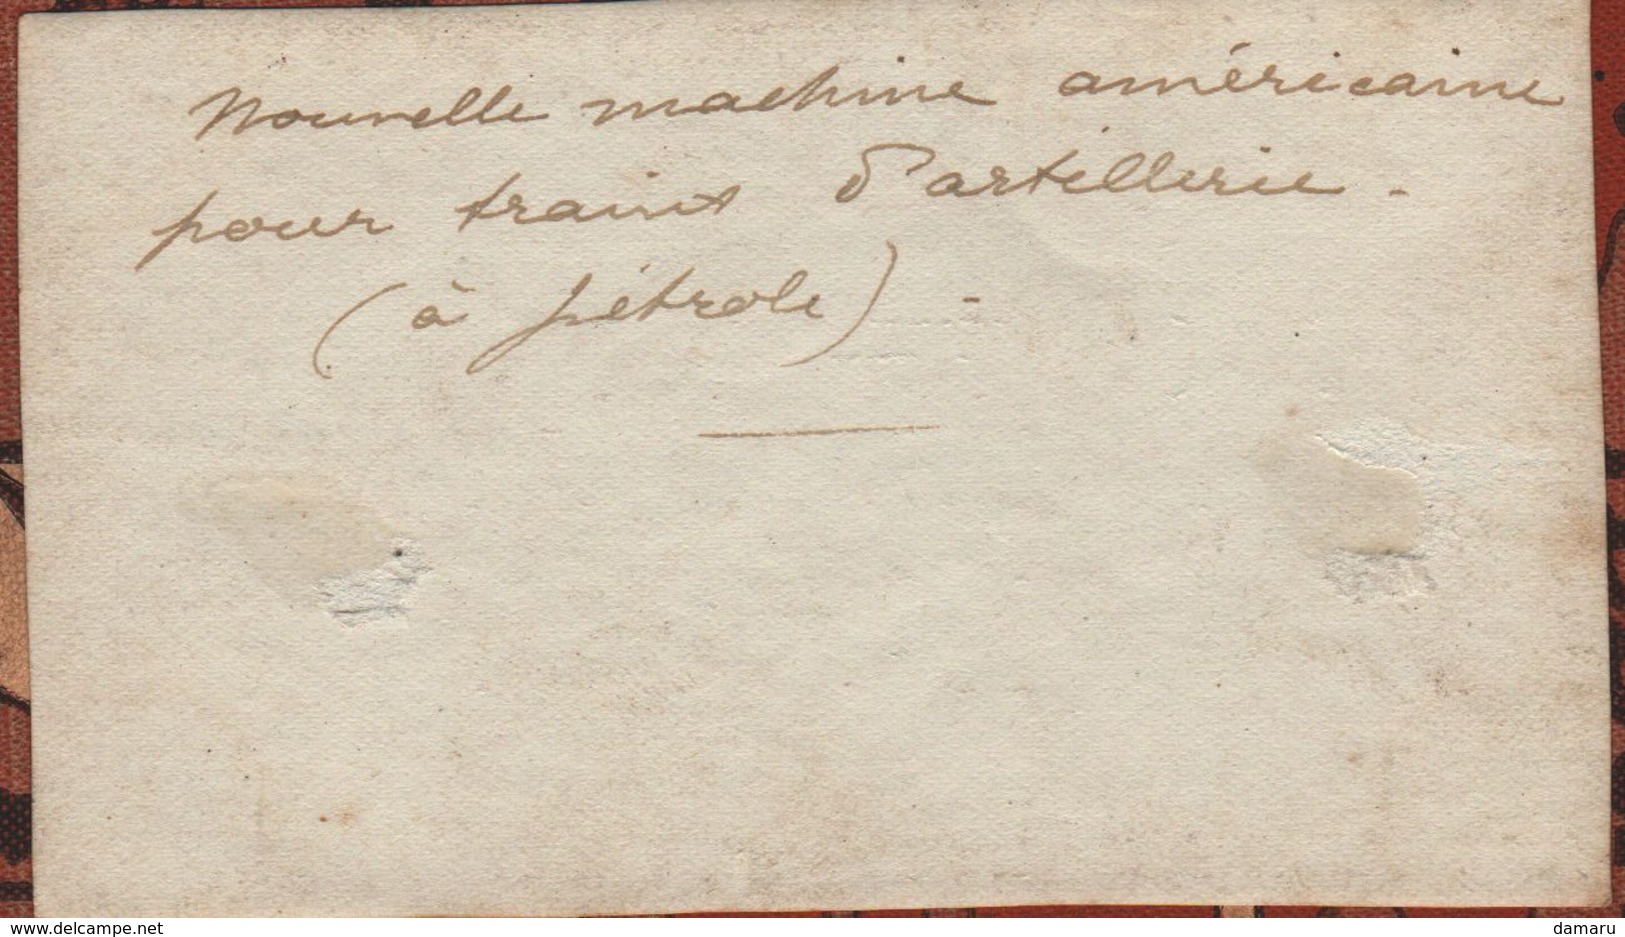 Nouvelle machine américaine
pour trains d'artillerie -
(à pétrole) -
www.delcampe.net
damaru